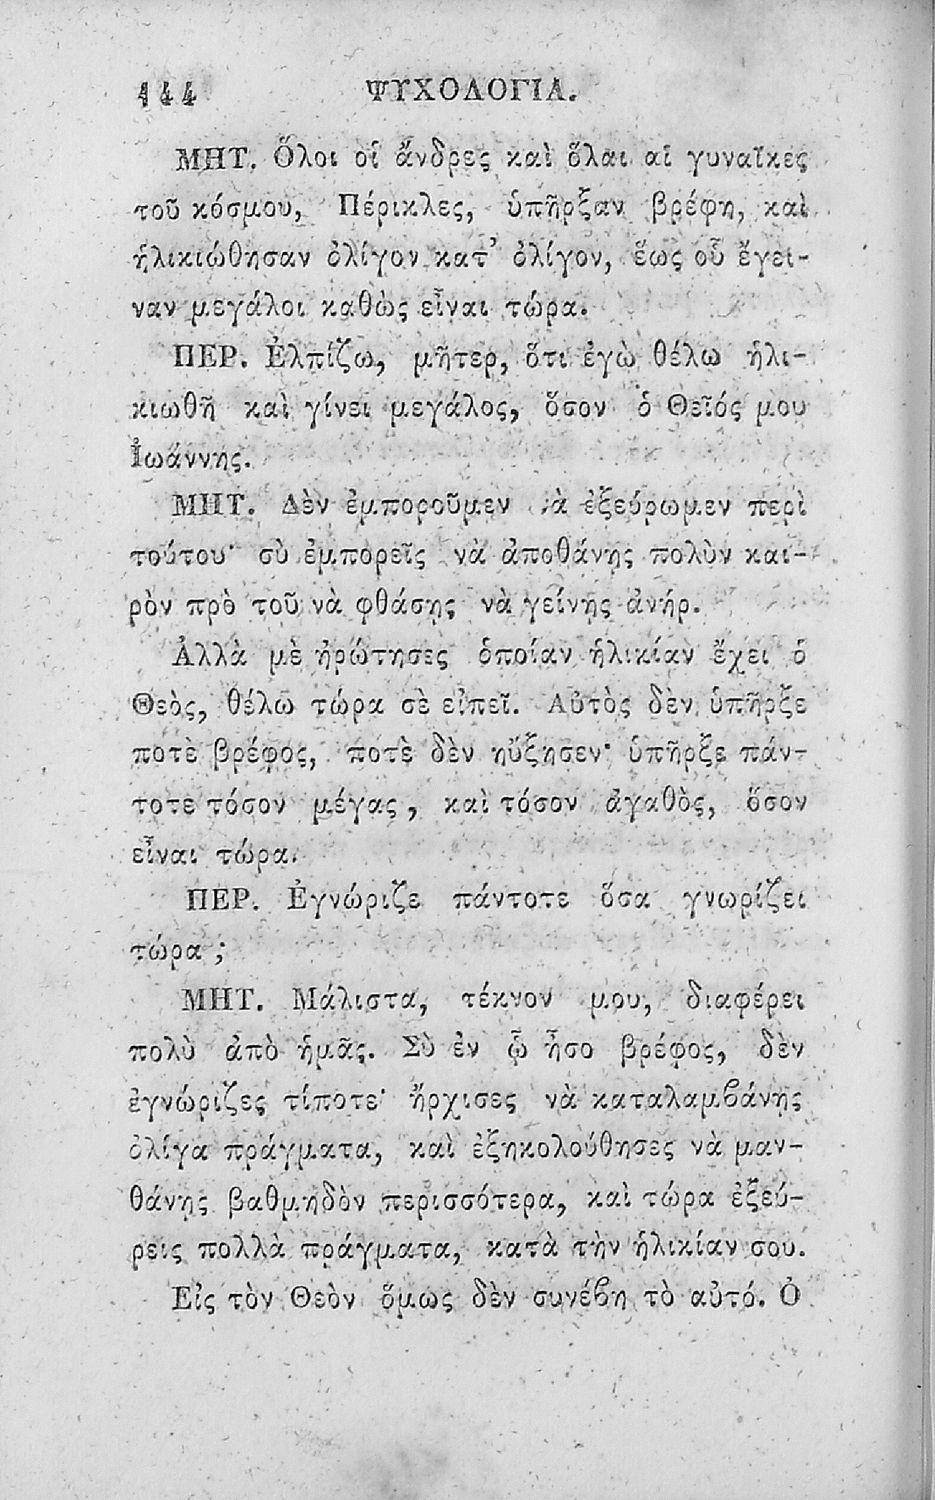 144 ΨΥΧΟΛΟΓΙΑ.
ΜΗΤ. Ὅλοι οἱ ἄνδρες καὶ ὅλαι αἱ γυναῖκες
τοῦ κόσμου, Πέρικλες, ὑπῆρξαν βρέφη, καὶ
ἡλικιώθησαν ὀλίγον κατ’ ὀλίγον, ἕως οὗ ἔγει-
ναν μεγάλοι καθὼς εἶναι τώρα.
ΠΕΡ. Ἐλπίζω, μῆτερ, ὅτι ἐγὼ θέλω ἡλι-
κιωθῆ καὶ γίνει μεγάλος, ὅσον ὁ Θεῖός μου
Ἰωάννης.
ΜΗΤ. Δὲν ἐμποροῦμεν νὰ ἐξεύρωμεν περὶ
τούτου· σὺ ἐμπορεῖς νὰ ἀποθάνῃς πολὺν και-
ρὸν πρὸ τοῦ νὰ φθάσῃς νὰ γείνῃς ἀνήρ.
Ἀλλὰ μὲ ἠρώτησες ὁποίαν ἡλικίαν ἔχει ὁ
Θεὸς, θέλω τώρα σὲ εἰπεῖ. Αὐτὸς δὲν ὑπῆρξε
ποτὲ βρέφος, ποτὲ δὲν ηὔξησεν· ὑπῆρξε πάν-
τοτε τόσον μέγας, καὶ τόσον ἀγαθὸς, ὅσον
εἶναι τώρα.
ΠΕΡ. Ἐγνώριζε πάντοτε ὅσα γνωρίζει
τώρα;
ΜΗΤ. Μάλιστα, τέκνον μου, διαφέρει
πολὺ ἀπὸ ἡμᾶς. Σὺ ἐν ᾧ ἦσο βρέφος, δὲν
ἐγνώριζες τίποτε· ἤρχισες νὰ καταλαμβάνῃς
ὀλίγα πράγματα, καὶ ἐξηκολούθησες νὰ μαν-
θάνῃς βαθμηδὸν περισσότερα, καὶ τώρα ἐξεύ-
ρεις πολλὰ πράγματα, κατὰ τὴν ἡλικίαν σου.
Εἰς τὸν Θεὸν ὅμως δὲν συνέβη τὸ αὐτό. Ὁ